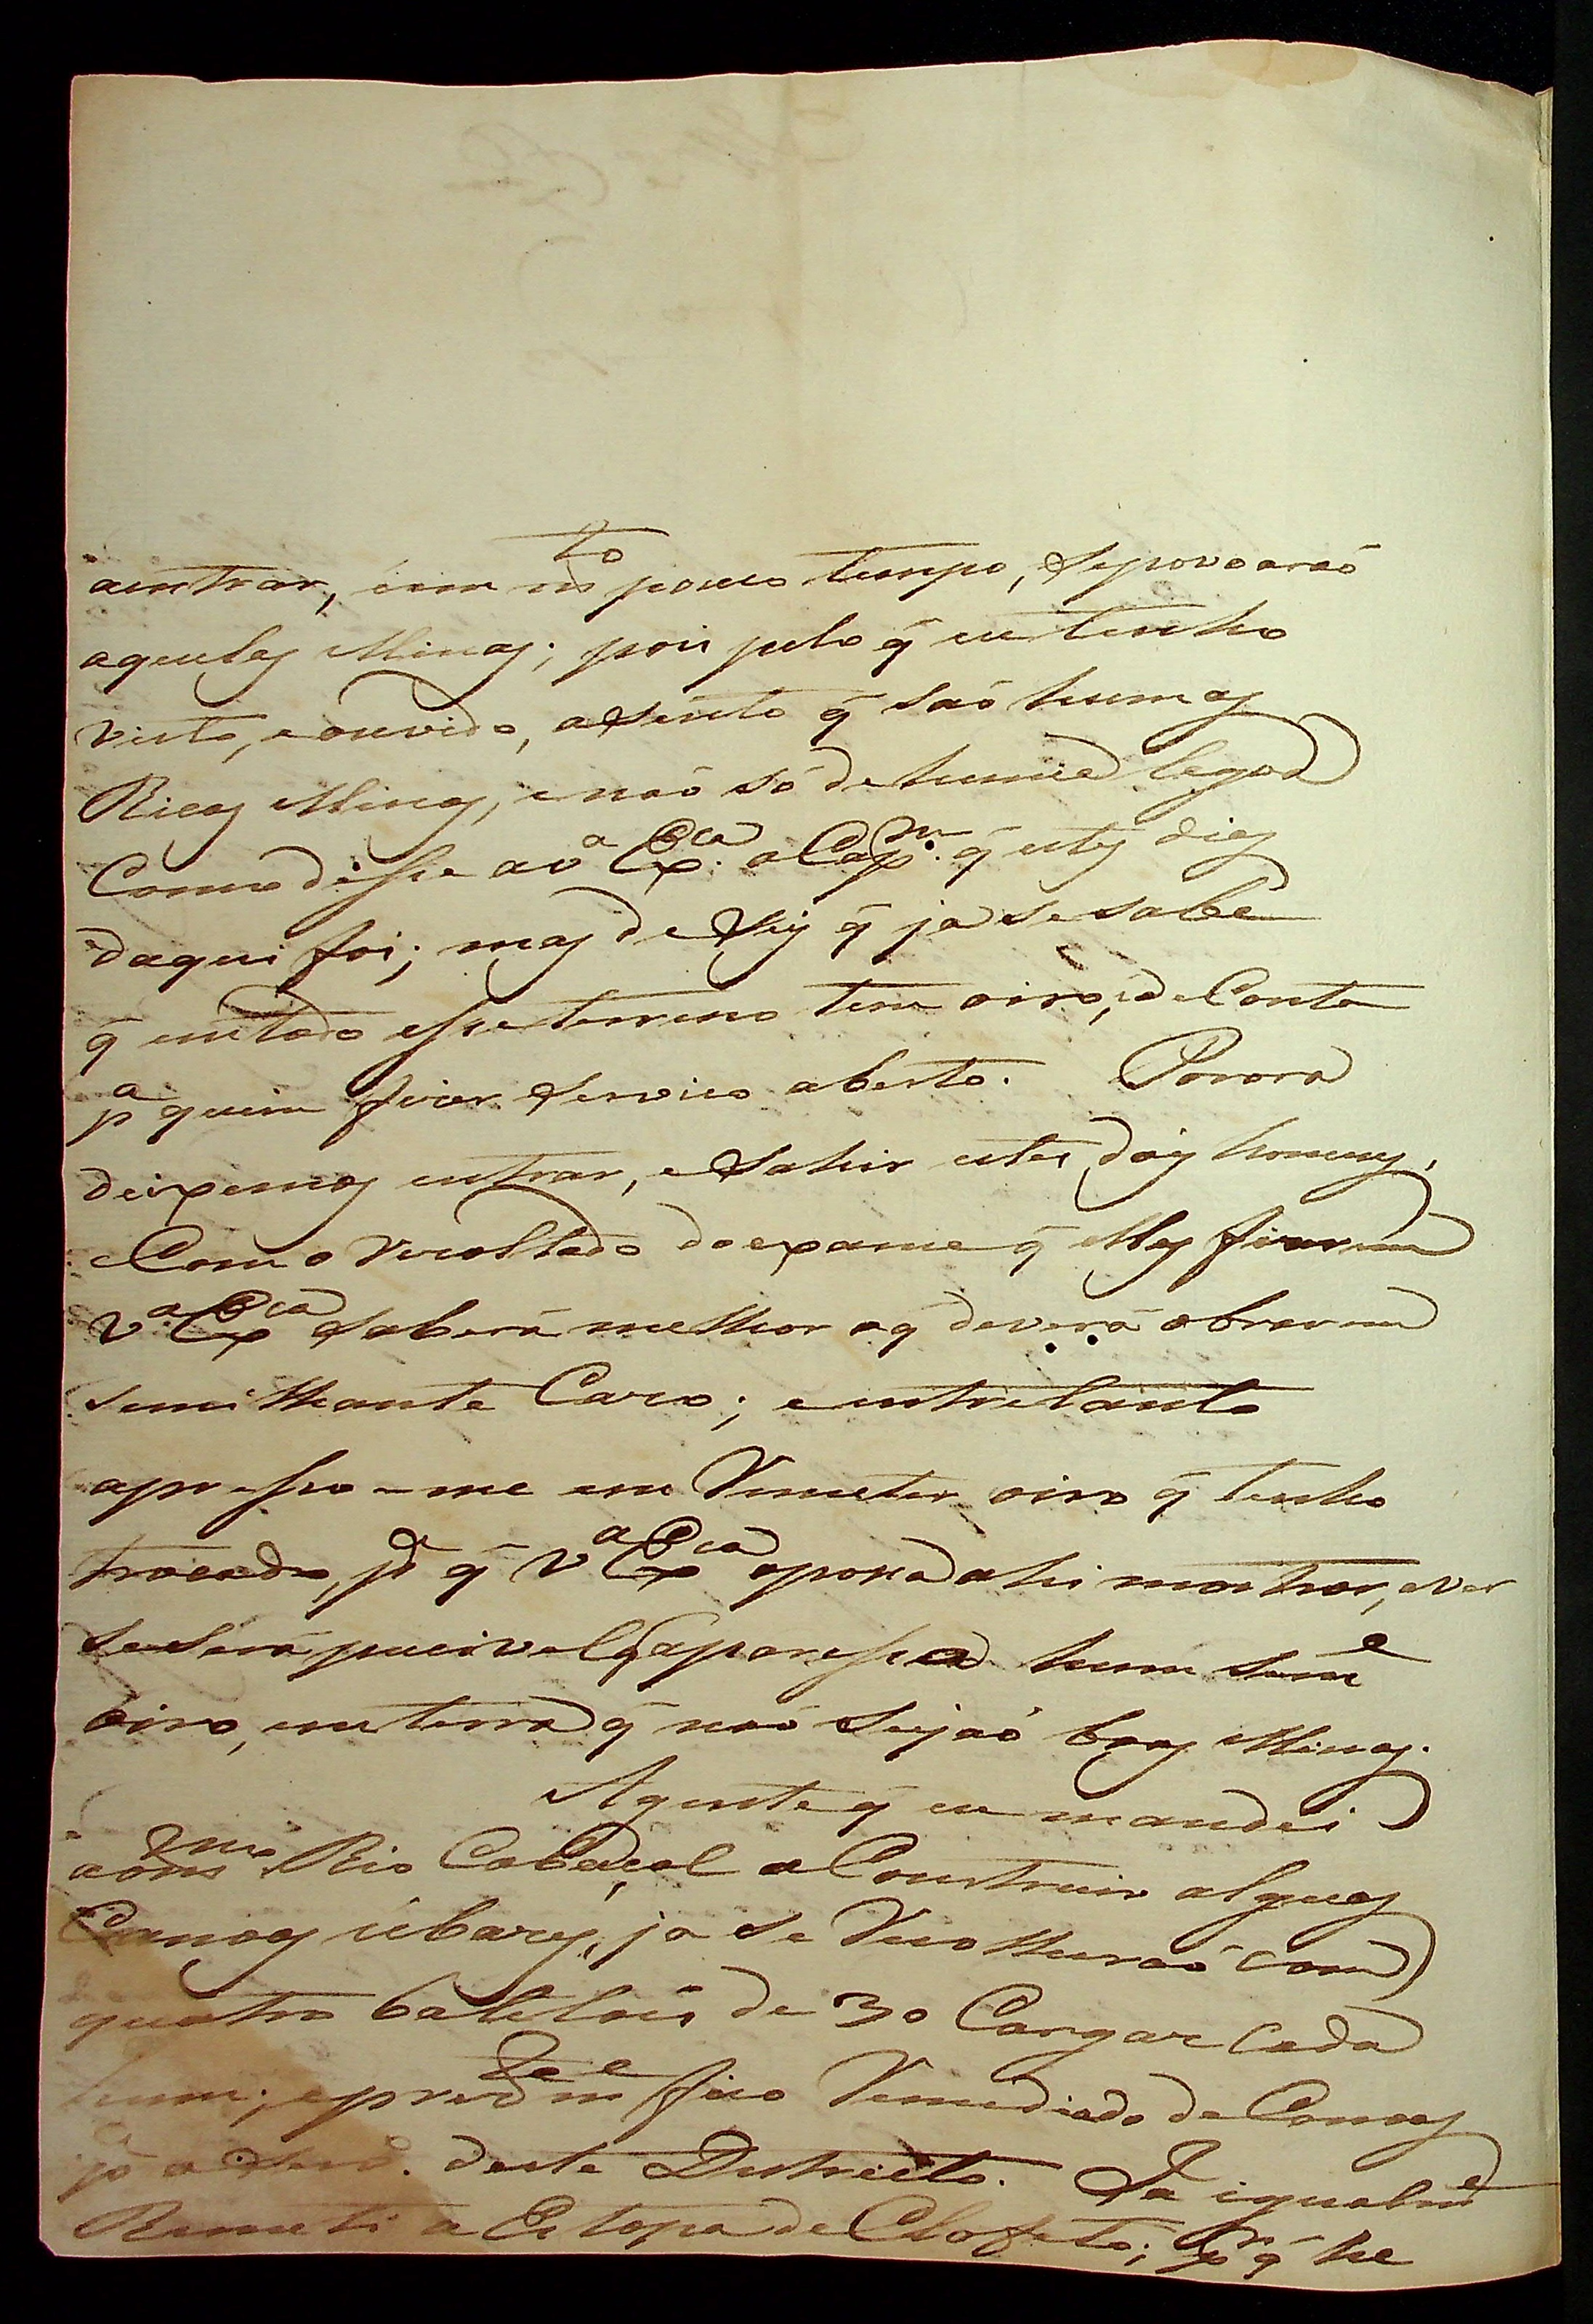 aentrar, éem mto pouco tempo, Sepovoaraó
aquelas Minas; pois pelo q̃ eu tenho
visto, eouvido, aSento q̃ saó humas
Ricas Minas, enaó só dehuma legoa
Como disse a Va Exca o Capm. q̃ estes dias
daqui foi; mas deSeis q̃ ja se sabe
q̃ emtodo esse terreno tem oiro, de Conta
pa quem fizer Serviço aberto. Porora
deixemos entrar, eSahir estes dois homens,
eCom o rezoltado do exame q̃ elles fizerem
Va Exca Saberá melhor oq̃ deverá obrar em
semilhante Cazo; eentretanto
apresso-me em Remeter oiro q̃ tenho
trocado, pa q̃ Va Exca opossa ahi mostrar, ever
seserá pucivel q̃ aparessa hum Seme
oiro, emterra q̃ naó Sejaó boas Minas.
Agente q̃ eu mandei
aomo Rio Cabaçal a Construir alguas
Canoas úbares, ja se Recolheraó com
quatro batelois de 30 Cargas Cada
hum; epreztemte fico Remediado de Canoas
pa o Serv. deste Districto. Ja igualme
Remeti a Estopa de Clofeto; pr q̃ he